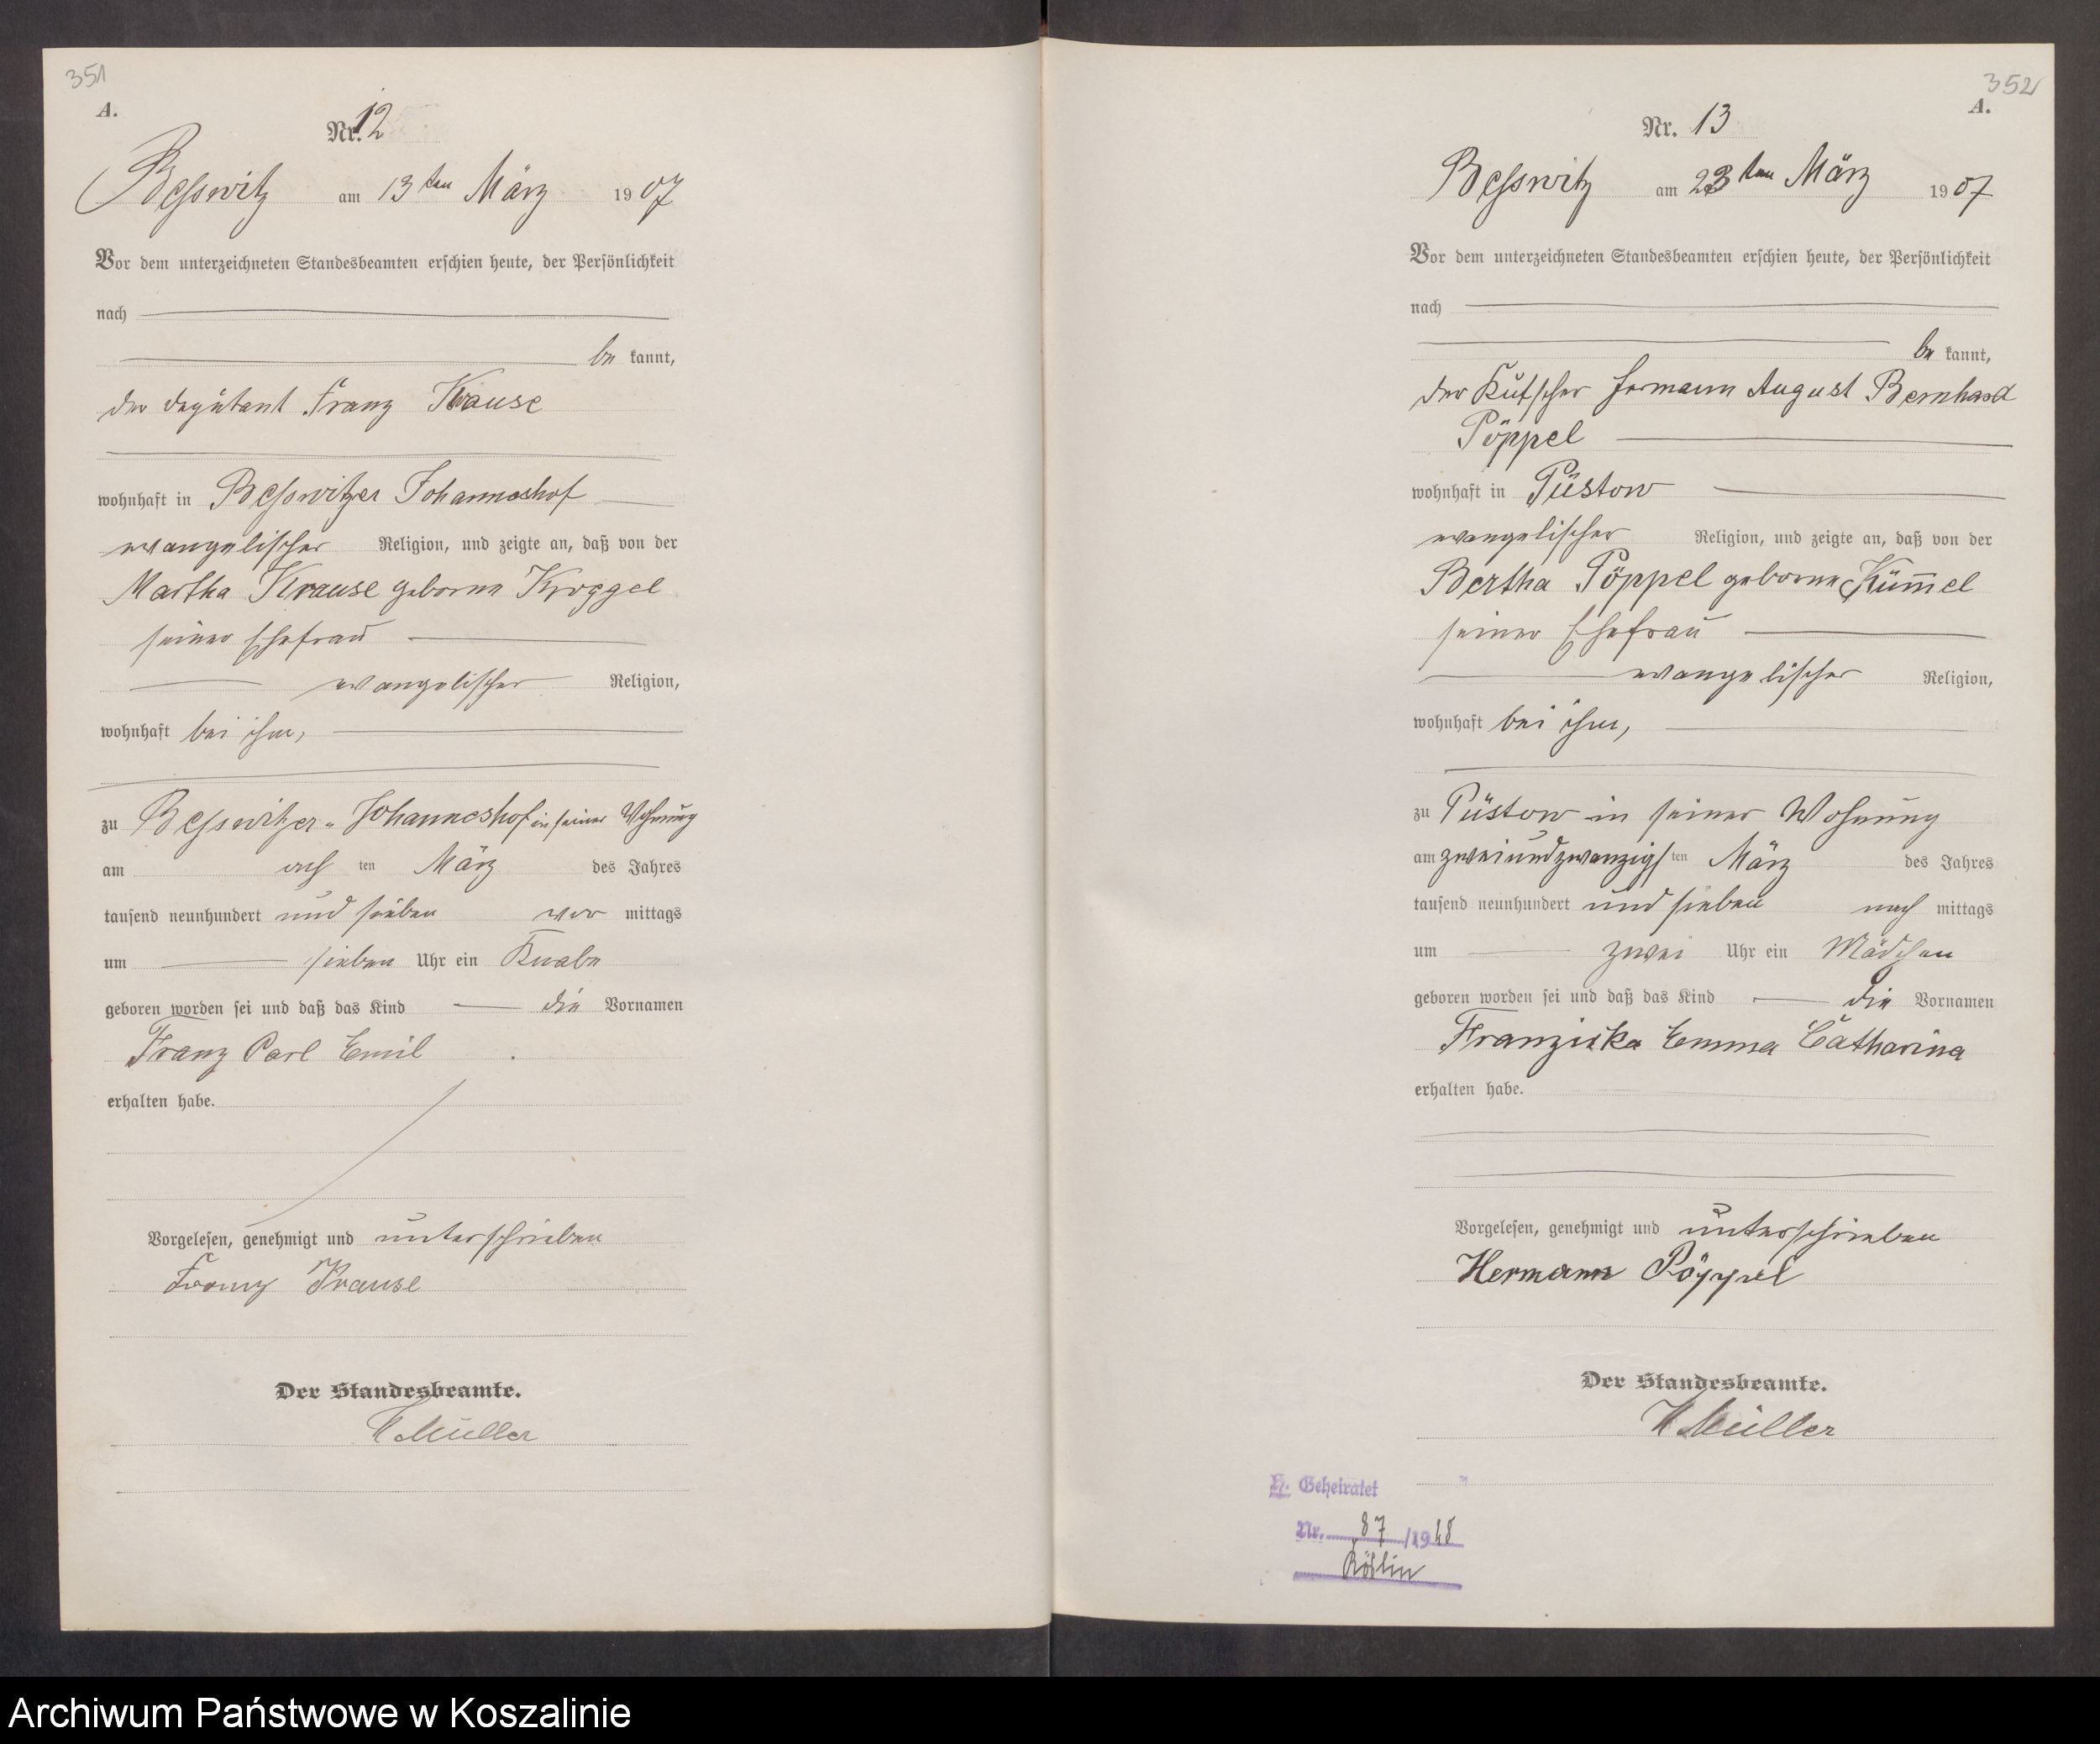 351
A.
Nr. 12
Besswitz am 13ten März 1907
Vor dem unterzeichneten Standesbeamten erschien heute, der Persönlichkeit
nach
be kannt,
der Deputant Franz Krause
wohnhaft in Besswitzer Johanneshof
evangelischer Religion, und zeigte an, daß von der
Martha Krause geborne Kroggel
seiner Ehefrau
evangelischer Religion,
wohnhaft bei ihm,
zu Besswitzer-Johanneshof in seiner Wohnung
am ach ten März des Jahres
tausend neunhundert und sieben vor mittags
um sieben Uhr ein Knabe
geboren worden sei und daß das Kind die Vornamen
Franz Carl Emil
erhalten habe.
Vorgelesen, genehmigt und unterschrieben
Franz Krause
Der Standesbeamte.
Müller
352
A.
Nr. 13
Besswitz am 23ten März 1907
Vor dem unterzeichneten Standesbeamten erschien heute, der Persönlichkeit
nach
be kannt,
der Kutscher Hermann August Bernhard
Pöppel
wohnhaft in Püstow
evangelischer Religion, und zeigte an, daß von der
Bertha Pöppel geborne Küm̅el
seiner Ehefrau
evangelischer Religion,
wohnhaft bei ihm,
zu Püstow in seiner Wohnung
am zweiundzwanzigs ten März des Jahres
tausend neunhundert und sieben nach mittags
um zwei Uhr ein Mädchen
geboren worden sei und daß das Kind die Vornamen
Franziska Emma Catharina
erhalten habe.
Vorgelesen, genehmigt und unterschrieben
Hermann Pöppel
Der Standesbeamte.
Müller
H. Geheiratet
Nr. 87 /19
Köslin
Archiwum Państwowe w Koszalinie